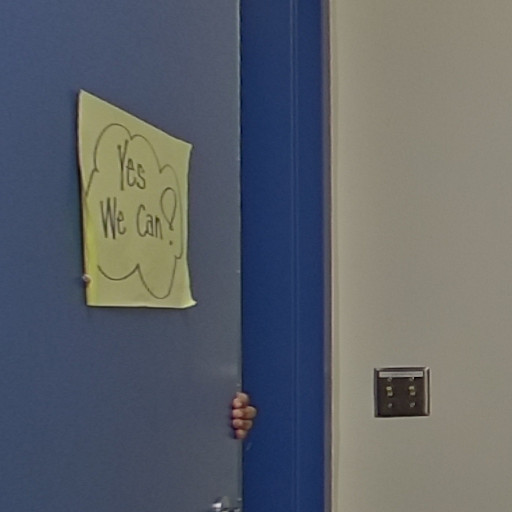 Yes
We Can!